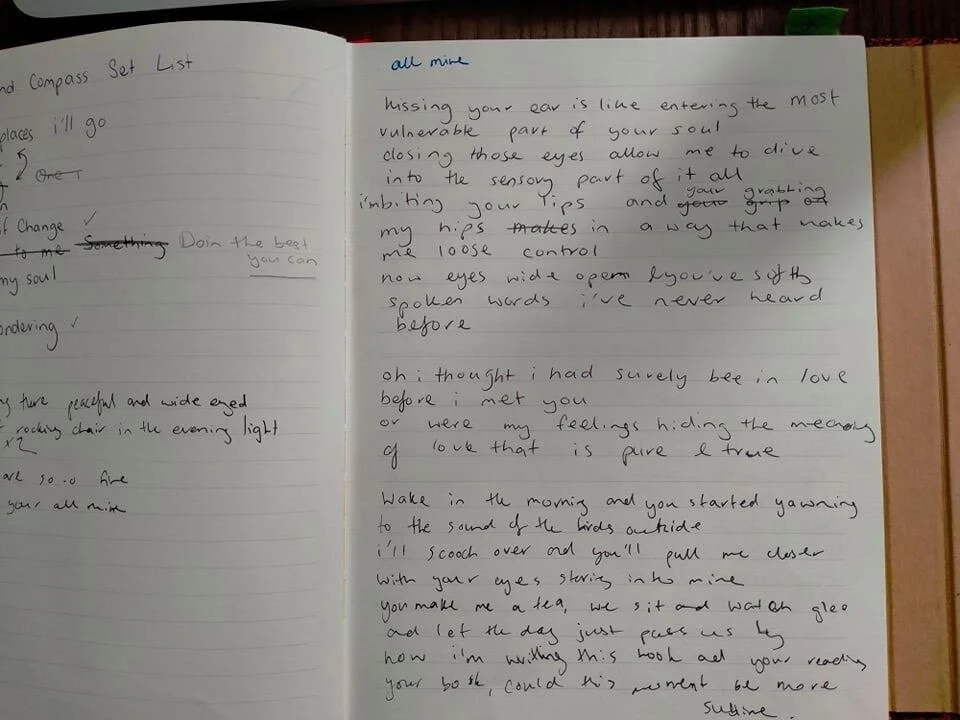 nd Compass Set List
places i'll go
One T
if Change ✓
to me Something Doin the best
you can
my soul
ondering ✓
there peaceful and wide eyed
rocking chair in the evening light
x2
are so.o fine
your all mine
all mine
kissing your ear is like entering the most
vulnerable part of your soul
closing those eyes allow me to dive
into the sensory part of it all
your grabbing
i'mbiting your lips and your grip on
my hips makes in a way that makes
me loose control
now eyes wide open &you've softly
spoken words i've never heard
before
oh i thought i had surely bee in love
before i met you
or were my feelings hiding the meaning
of love that is pure & true
Wake in the morning and you started yawning
to the sound of the birds outside
i'll scooch over and you'll pull me closer
with your eyes staring into mine
you make me a tea, we sit and watch glee
and let the day just pass us by
now i'm writing this book and your reading
your book, could this moment be more
sublime.